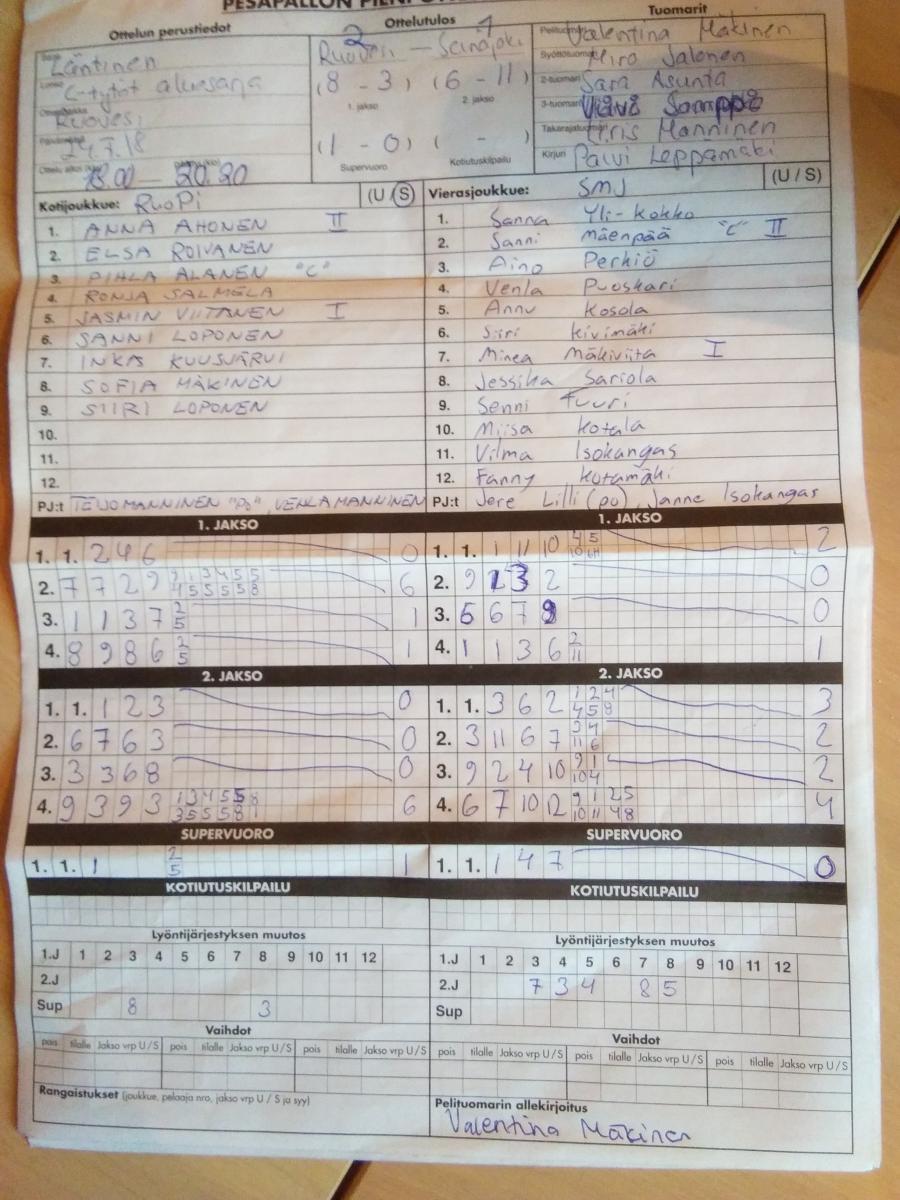 Ottelun perustiedot
Läntinen
C-tytöt aluesarja
Ruovesi
18.00 — 20.20
Ottelutulos
2 1
Ruovesi — Seinäjoki
(8 - 3) (6 - 11)
1. jakso 2. jakso
(1 - 0) ( - )
Supervuoro Kotiutuskilpailu
Tuomarit
Pelituomari Valentina Mäkinen
Syöttötuomari Miro Jalonen
2-tuomari Sara Asunta
3-tuomari
Takarajatuomari Iiris Manninen
Kirjuri Paivi Leppämäki
Kotijoukkue: RuoPi (U / S)
1. ANNA AHONEN II
2. ELSA ROIVANEN
3. PIHLA ALANEN "C"
4. RONJA SALMELA
5. JASMIN VIITANEN I
6. SANNI LOPONEN
7. INKA KUUSJÄRVI
8. SOFIA MÄKINEN
9. SIIRI LOPONEN
10.
11.
12.
PJ:t TEIJO MANNINEN "PJ", VENLA MANNINEN
Vierasjoukkue: SMJ (U / S)
1. Sanna Yli-Kokko
2. Sanni Mäenpää "C" II
3. Aino Perkiö
4. Venla Puoskari
5. Annu Kosola
6. Siiri Kivimäki
7. Minea Mäkiviita I
8. Jessika Sariola
9. Senni Tuuri
10. Miisa Kotala
11. Vilma Isokangas
12. Fanny Kotamäki
PJ:t Jere Lilli (pj), Janne Isokangas
1. JAKSO
1. 1. 2 4 6 0
2. 7 7 2 9 6
3. 1 1 3 7 2 5 1
4. 8 9 8 6 2 5 1
2. JAKSO
1. 1. 1 2 3 0
2. 6 7 6 3 0
3. 3 3 6 8 0
4. 9 3 9 3 6
SUPERVUORO
1. 1. 1 2 5 1
KOTIUTUSKILPAILU
Lyöntijärjestyksen muutos
1.J 1 2 3 4 5 6 7 8 9 10 11 12
2.J
Sup 8 3
Vaihdot
pois tilalle Jakso vrp U / S pois tilalle Jakso vrp U / S pois tilalle Jakso vrp U / S
Rangaistukset (joukkue, pelaaja nro, jakso vrp U / S ja syy)
1. JAKSO
1. 1. 1 11 10 2
2. 9 2 0
3. 6 6 7 0
4. 1 1 3 6 2 11 1
2. JAKSO
1. 1. 3 6 2 1 2 4 4 5 8 3
2. 3 11 6 7 3 4 11 6 2
3. 9 2 4 10 9 1 10 4 2
4. 6 7 10 12 9 1 2 5 10 11 4 8 4
SUPERVUORO
1. 1. 1 4 7 0
KOTIUTUSKILPAILU
Lyöntijärjestyksen muutos
1.J 1 2 3 4 5 6 7 8 9 10 11 12
2.J 7 3 4 8 5
Sup
Vaihdot
pois tilalle Jakso vrp U / S pois tilalle Jakso vrp U / S pois tilalle Jakso vrp U / S
Pelituomarin allekirjoitus
Valentina Mäkinen